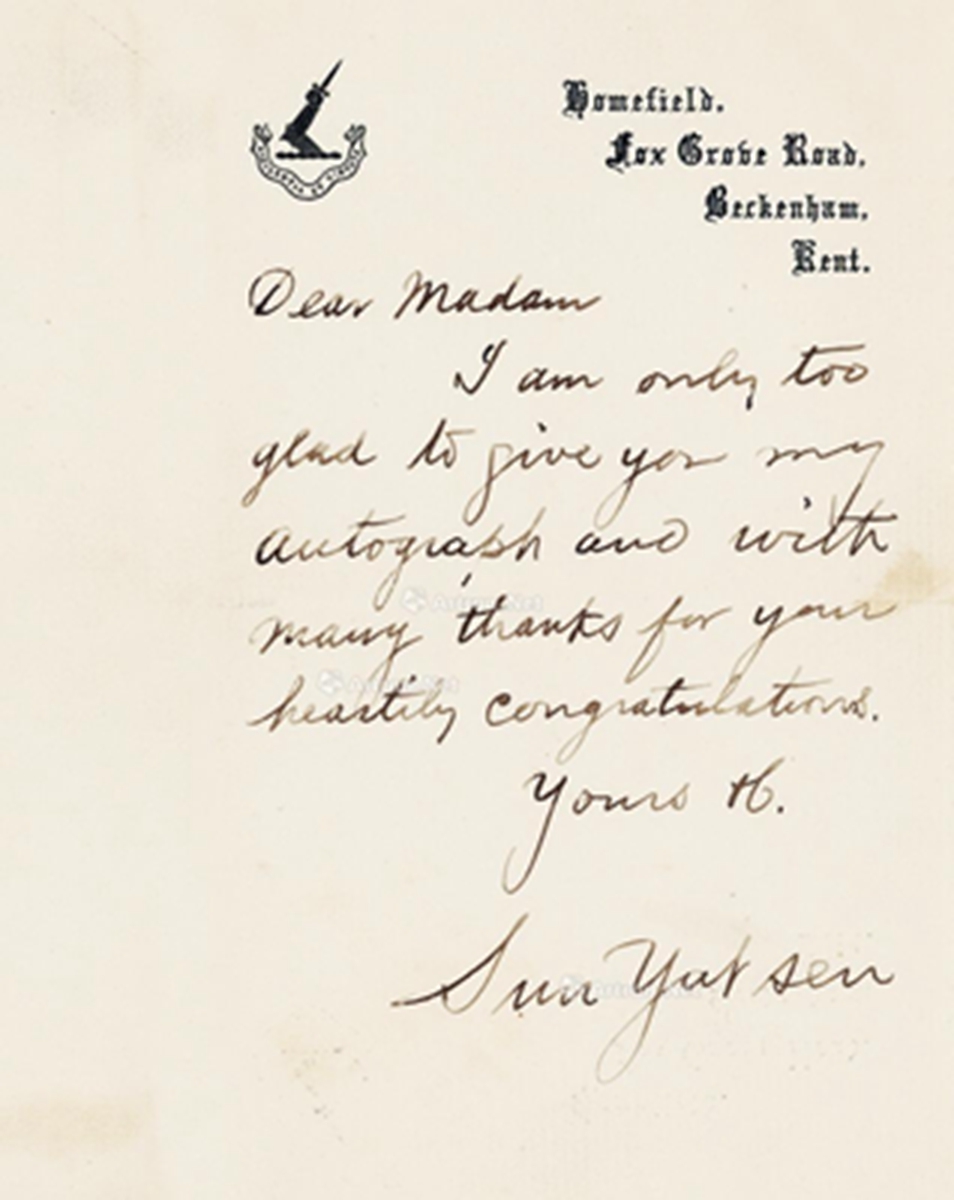 Homefield.
Fox Grove Road,
Beckenham,
Kent.
Dear Madam
I am only too
glad to give you my
autograph and with
many thanks for your
heartily congratulations.
Yours
Sun Yat sen